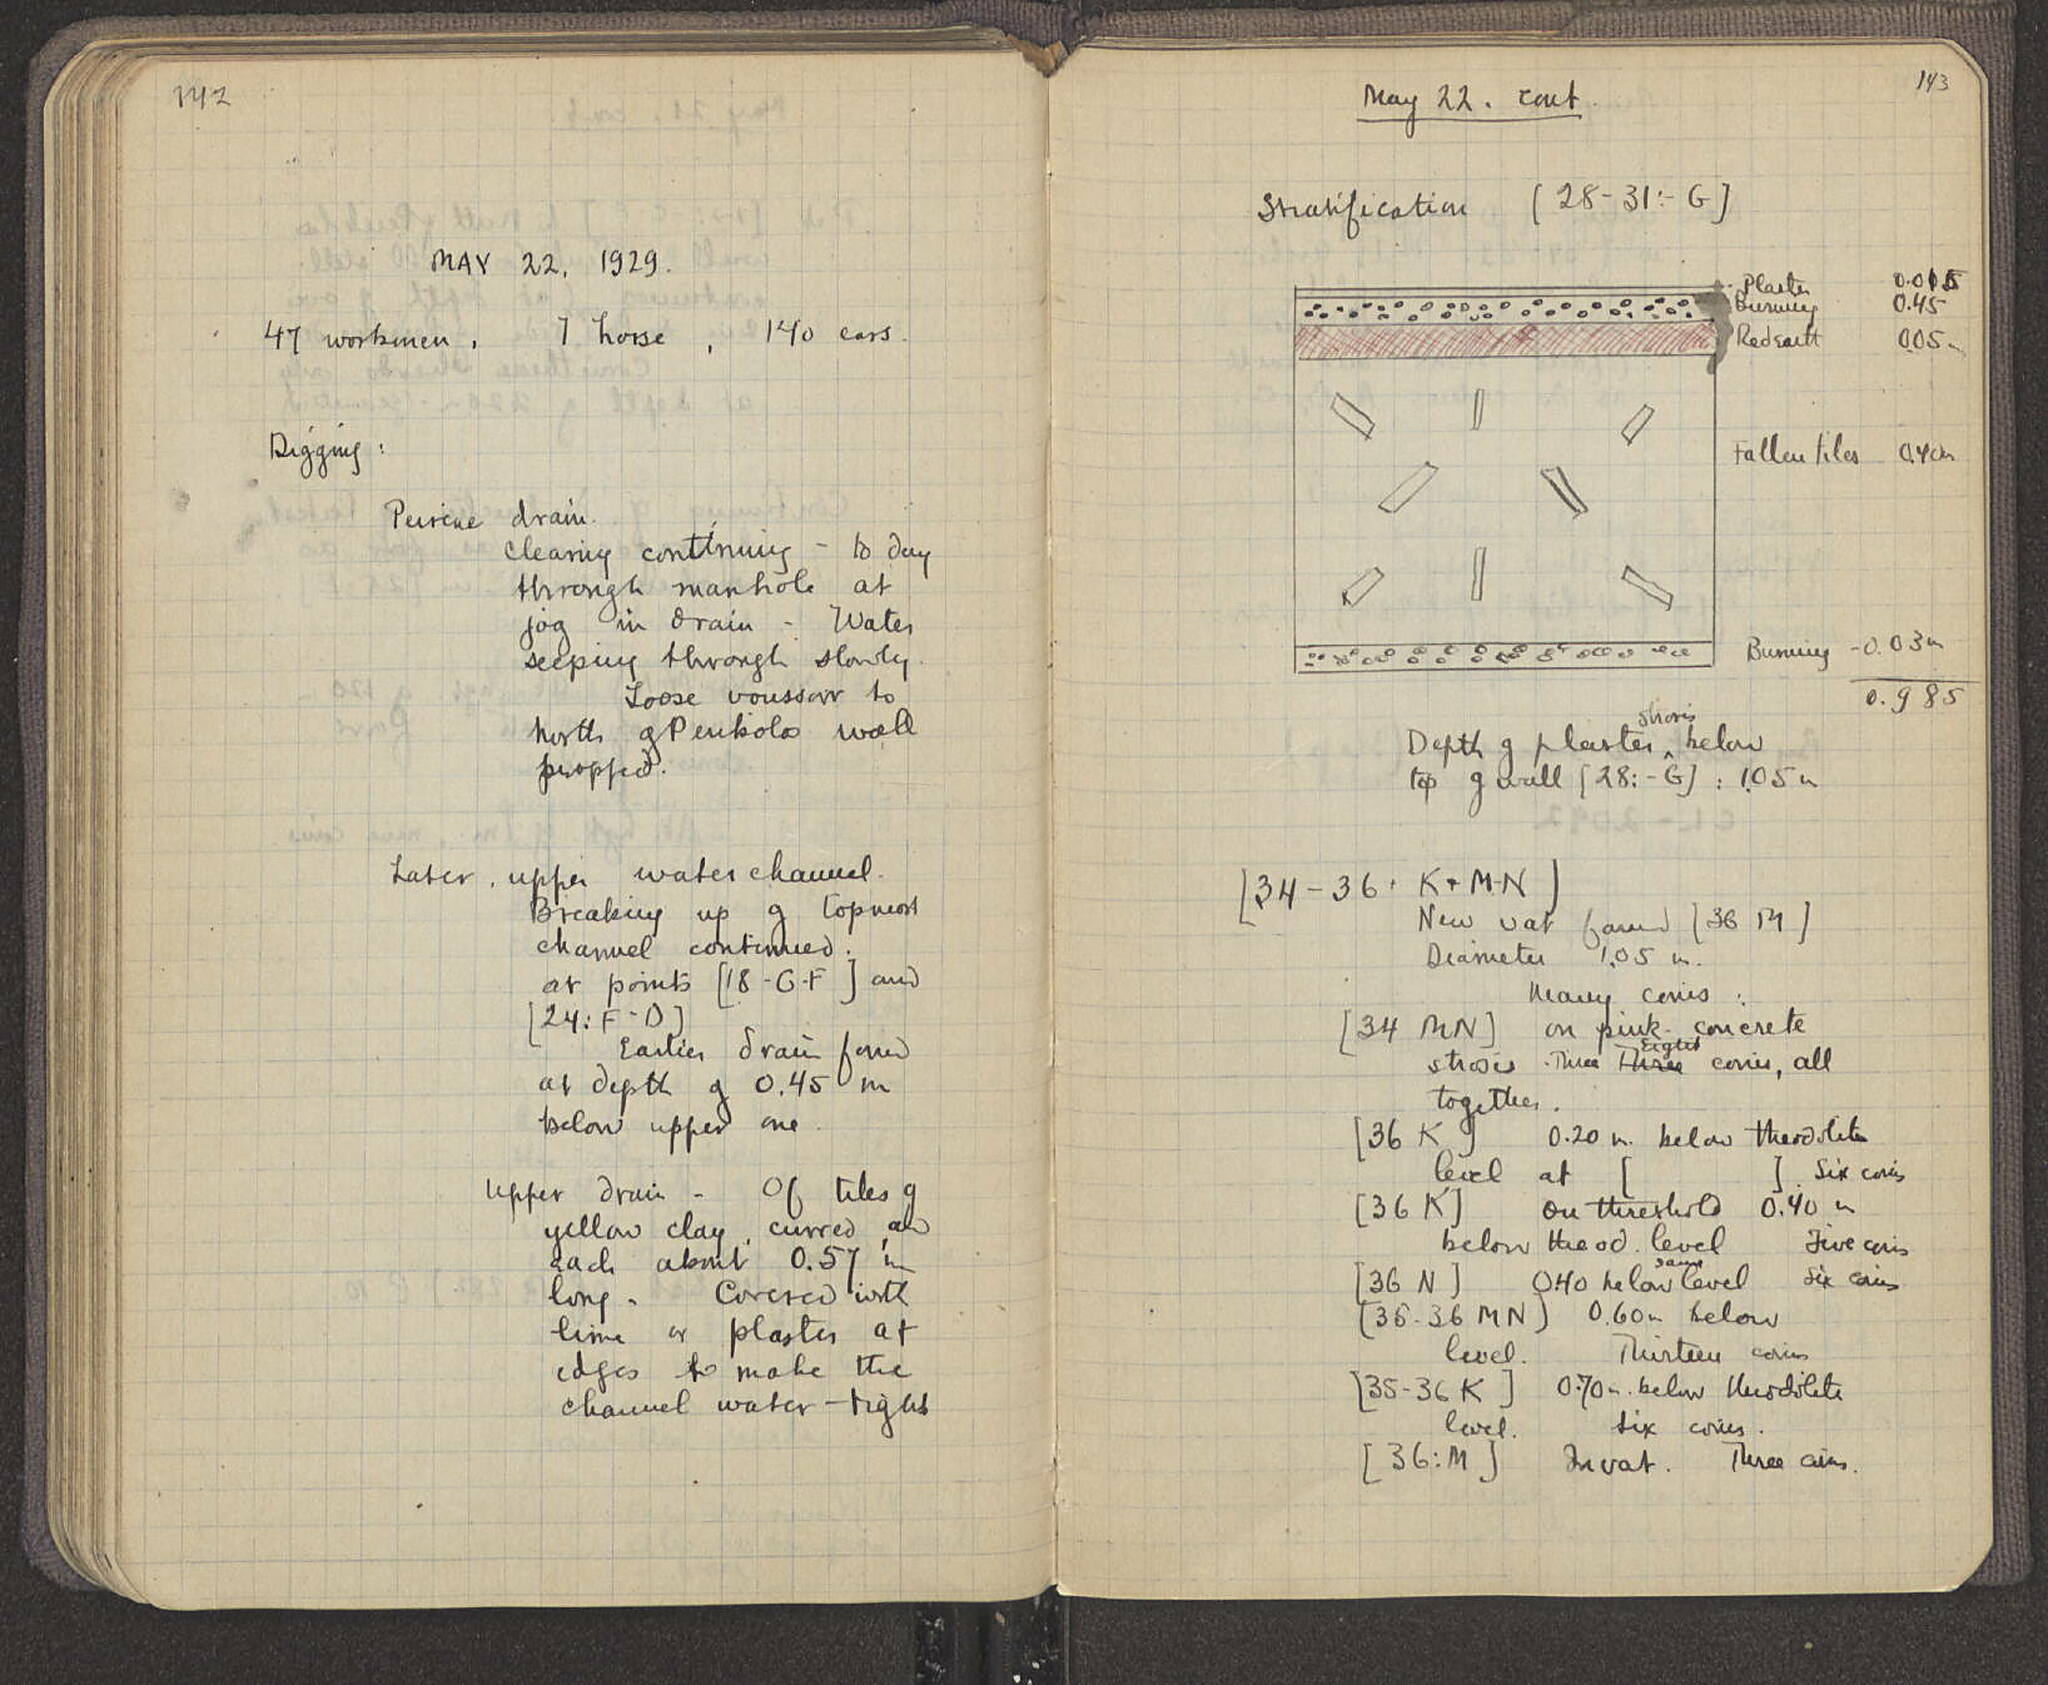 142
MAY 22, 1929.
47 workmen, 7 horse, 140 cars.
Digging:
Peirene drain.
Clearing continuing - to day
through manhole at
jog in drain - Water
seeping through slowly.
Loose voussoir to
north of Peribolos wall
propped.
Later, upper water channel.
Breaking up of topmost
channel continued.
at points [18-G-F] and
[24:F-D]
Earlier drain found
at depth of 0.45 m
below upper one.
Upper drain - Of tiles of
yellow clay, curved, and
each about 0.57 m
long. Covered with
lime or plaster at
edges to make the
channel water-tight
143
May 22. cont.
Stratification [28-31:-G]
Plaster 0.015
Burning 0.45
Red earth 0.05 m
Fallen tiles 0.40m
Burning -0.03m
0.985
Depth of plaster strosis below
top of wall [28:-G]: 1.05 m
[34-36: K+M-N]
New vat found [36 M]
Diameter 1.05 m.
Many coins:
[34 MN] on pink concrete
strosis. Three Three Eight coins, all
together.
[36 K] 0.20 m. below theodolite
level at [ ]. Six coins
[36 K] on threshold 0.40 m
below theod. level Five coins
[36 N] 0.40 below same level Six coins
[35-36 MN] 0.60m below
level. Thirteen coins
[35-36 K] 0.70m. below theodolite
level. Six coins.
[36:M] In vat. Three coins.